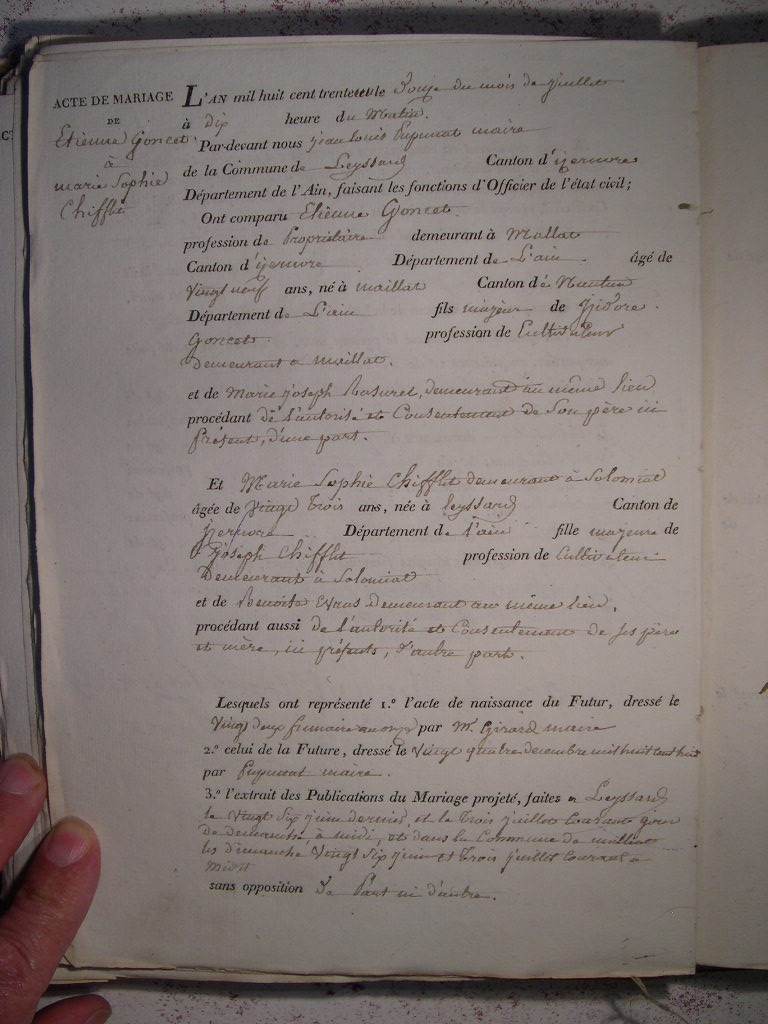 ACTE DE MARIAGE
DE
Etienne Goncet
à
marie Sophie
Chifflet
L'AN mil huit cent trente le Douze du mois de juillet
à dix heure du Matin.
Par-devant nous jean louis Pupunat maire
de la Commune de Leyssard Canton d'izernore
Département de l'Ain, faisant les fonctions d'Officier de l'état civil;
Ont comparu Etiènne Goncet.
profession de Propriétaire demeurant à Mallat
Canton d'izernore Département de L'ain âgé de
Vingt neuf ans, né à maillat Canton de Nantua
Département de L'ain fils majeur de Izidore
Goncet. profession de Cultivateur
Demeurant a maillat.
et de Marie joseph Rasurel, demeurant au même lieu
procédant de l'autorité et Consentement de Son père ici
présent, d'une part.
Et Marie Sophie Chifflet demeurant à Solomiat
âgée de Vingt Trois ans, née à leyssard Canton de
izernore Département de l'ain fille majeure de
joseph Chifflet profession de Cultivateur
Demeurant à Solomiat
et de Benoite Evras demeurant au même lieu,
procédant aussi de l'autorité et Consentement de ses père
et mère, ici présents, d'autre part.
Lesquels ont représenté 1.º l'acte de naissance du Futur, dressé le
Vingt deux frimaire an onze par Mr. Girard maire
2.º celui de la Future, dressé le Vingt quatre decembre mil huit cent huit
par Pupunat maire.
3.º l'extrait des Publications du Mariage projeté, faites a Leyssard
le Vingt Six juin dernier, et le Trois juillet Courant jour
de demanche, à midi, et dans la Commune de maillat
les dimanche Vingt Six juin et Trois juillet Courant a
Midi
sans opposition De Part ni d'autre.